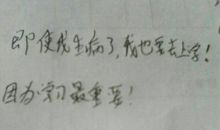 即使我生病了,我也要去上学!
因为学习最重要!